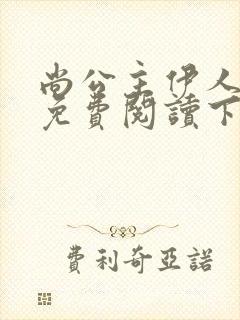 尚公主伊人
免費閱讀下
費利奇亞諾